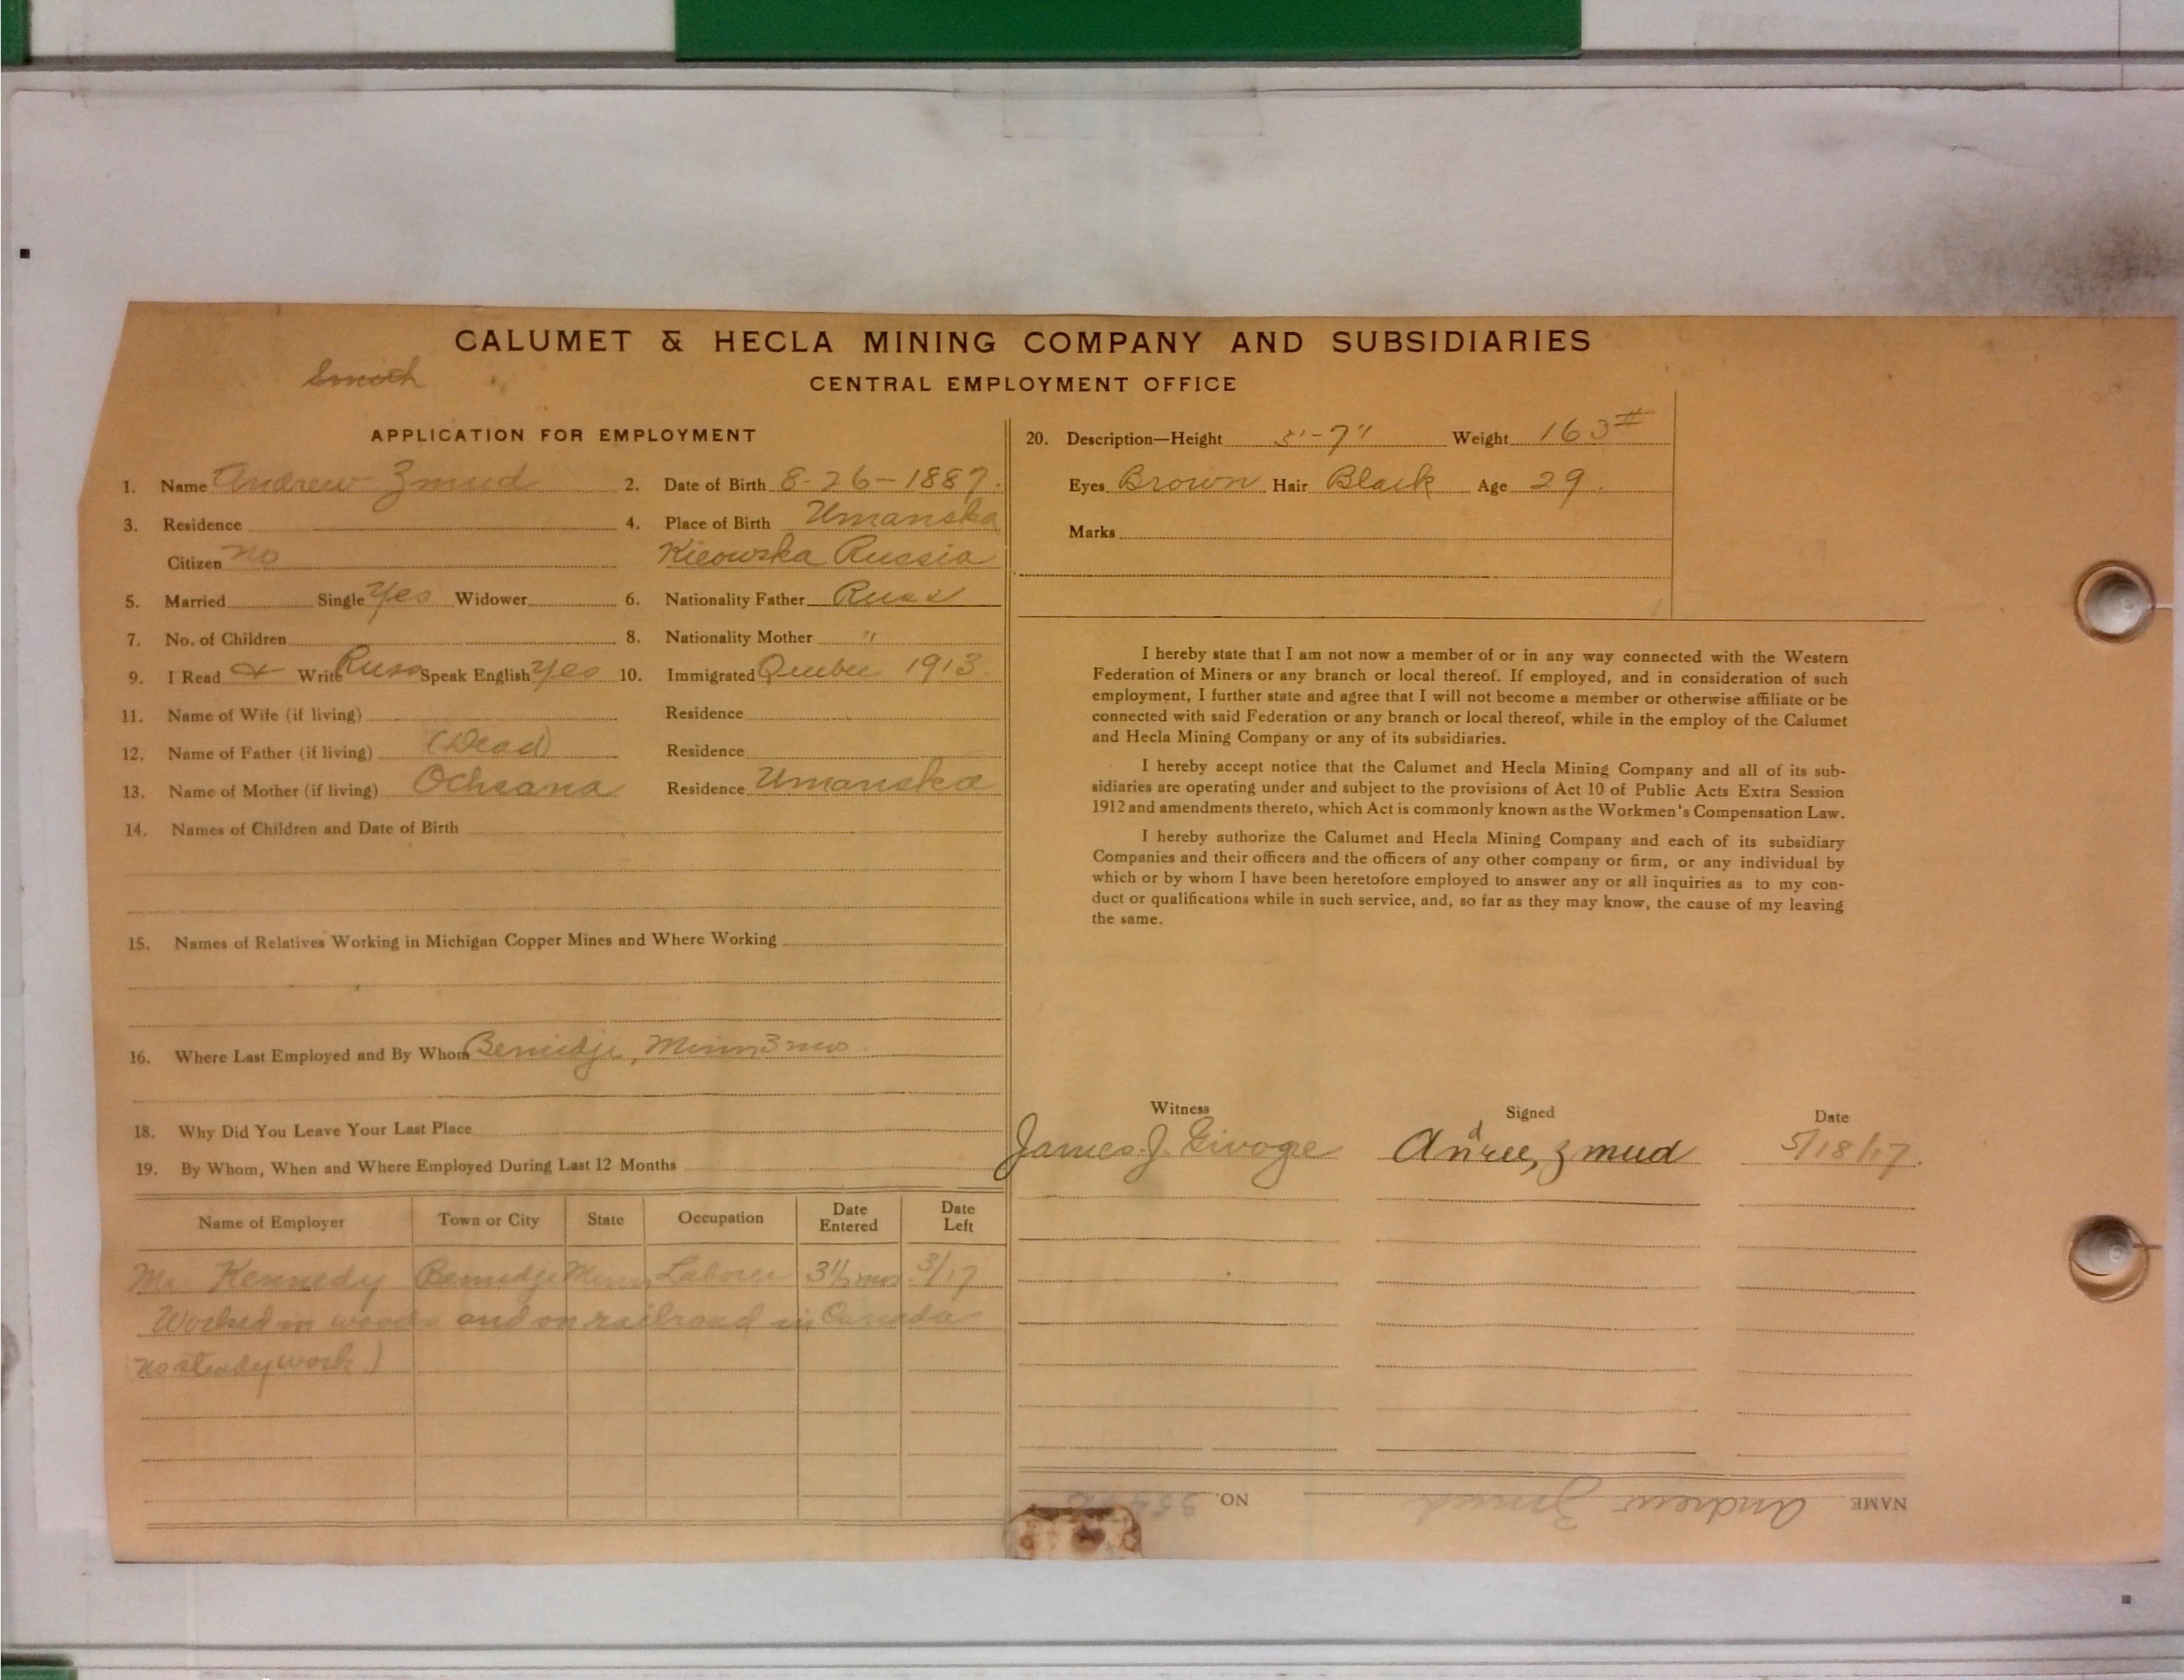 CALUMET & HECLA MINING COMPANY AND SUBSIDIARIES
Smith
CENTRAL EMPLOYMENT OFFICE
APPLICATION FOR EMPLOYMENT
1. Name Andrew Zmud 2. Date of Birth 8-26-1887.
3. Residence 4. Place of Birth Umanska
Citizen no Kieowska Russia
5. Married Single Yes Widower 6. Nationality Father Russ
7. No. of Children 8. Nationality Mother "
9. I Read & Write Russ Speak English Yes 10. Immigrated Quebec 1913.
11. Name of Wife (if living) Residence
12. Name of Father (if living) (Dead) Residence
13. Name of Mother (if living) Ochsana Residence Umanska
14. Names of Children and Date of Birth
15. Names of Relatives Working in Michigan Copper Mines and Where Working
16. Where Last Employed and By Whom Bemidji, Minn 3 mos.
18. Why Did You Leave Your Last Place
19. By Whom, When and Where Employed During Last 12 Months
Name of Employer Town or City State Occupation Date Entered Date Left
Mr. Kennedy Bemidji Minn Laborer 3½ mos 3/17
Worked in woods and on railroad in Canada
no steady work)
20. Description—Height 5'-7" Weight 163#
Eyes Brown Hair Black Age 29.
Marks
I hereby state that I am not now a member of or in any way connected with the Western
Federation of Miners or any branch or local thereof. If employed, and in consideration of such
employment, I further state and agree that I will not become a member or otherwise affiliate or be
connected with said Federation or any branch or local thereof, while in the employ of the Calumet
and Hecla Mining Company or any of its subsidiaries.
I hereby accept notice that the Calumet and Hecla Mining Company and all of its sub-
sidiaries are operating under and subject to the provisions of Act 10 of Public Acts Extra Session
1912 and amendments thereto, which Act is commonly known as the Workmen's Compensation Law.
I hereby authorize the Calumet and Hecla Mining Company and each of its subsidiary
Companies and their officers and the officers of any other company or firm, or any individual by
which or by whom I have been heretofore employed to answer any or all inquiries as to my con-
duct or qualifications while in such service, and, so far as they may know, the cause of my leaving
the same.
Witness Signed Date
James J. Givogre Andree, zmud 5/18/17.
NAME Andrew Zmud NO.